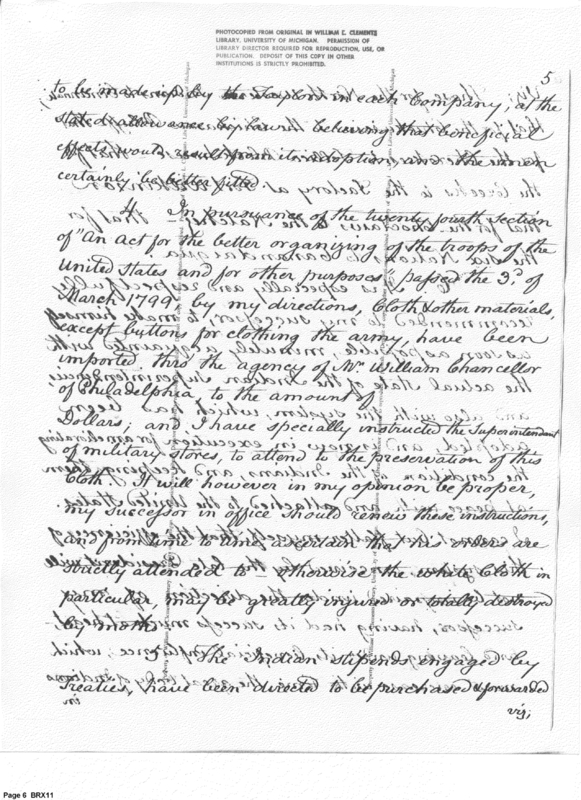 PHOTOCOPIED FROM ORIGINAL IN WILLIAM L. CLEMENTS
LIBRARY, UNIVERSITY OF MICHIGAN. PERMISSION OF
LIBRARY DIRECTOR REQUIRED FOR REPRODUCTION, USE, OR
PUBLICATION. DEPOSIT OF THIS COPY IN OTHER
INSTITUTIONS IS STRICTLY PROHIBITED.
5
to be made up by the Taylors in each Company, at the
stated allowance by law; believing that beneficial
effects would result from its adoption and the men
certainly be better fitted.
4. In pursuance of the twenty fourth section
of "An act for the better organizing of the troops of the
United States and for other purposes", passed the 3d. of
March 1799, by my directions, Cloth & other materials,
except buttons for clothing the army, have been
imported thro the agency of Mr. William Chancellor
of Philadelphia to the amount of
Dollars; and I have specially instructed the Superintendant
of military stores, to attend to the preservation of this
Cloth. It will however in my opinion be proper,
my Successor in office should renew these instructions,
and from time to time ascertain that his orders are
strictly attended to — otherwise the white Cloth in
particular, may be greatly injured or totally destroyed
by moths.
5. The Indian stipends engaged by
Treaties, have been directed to be purchased & forwarded
in
viz;
Page 6 BRX11